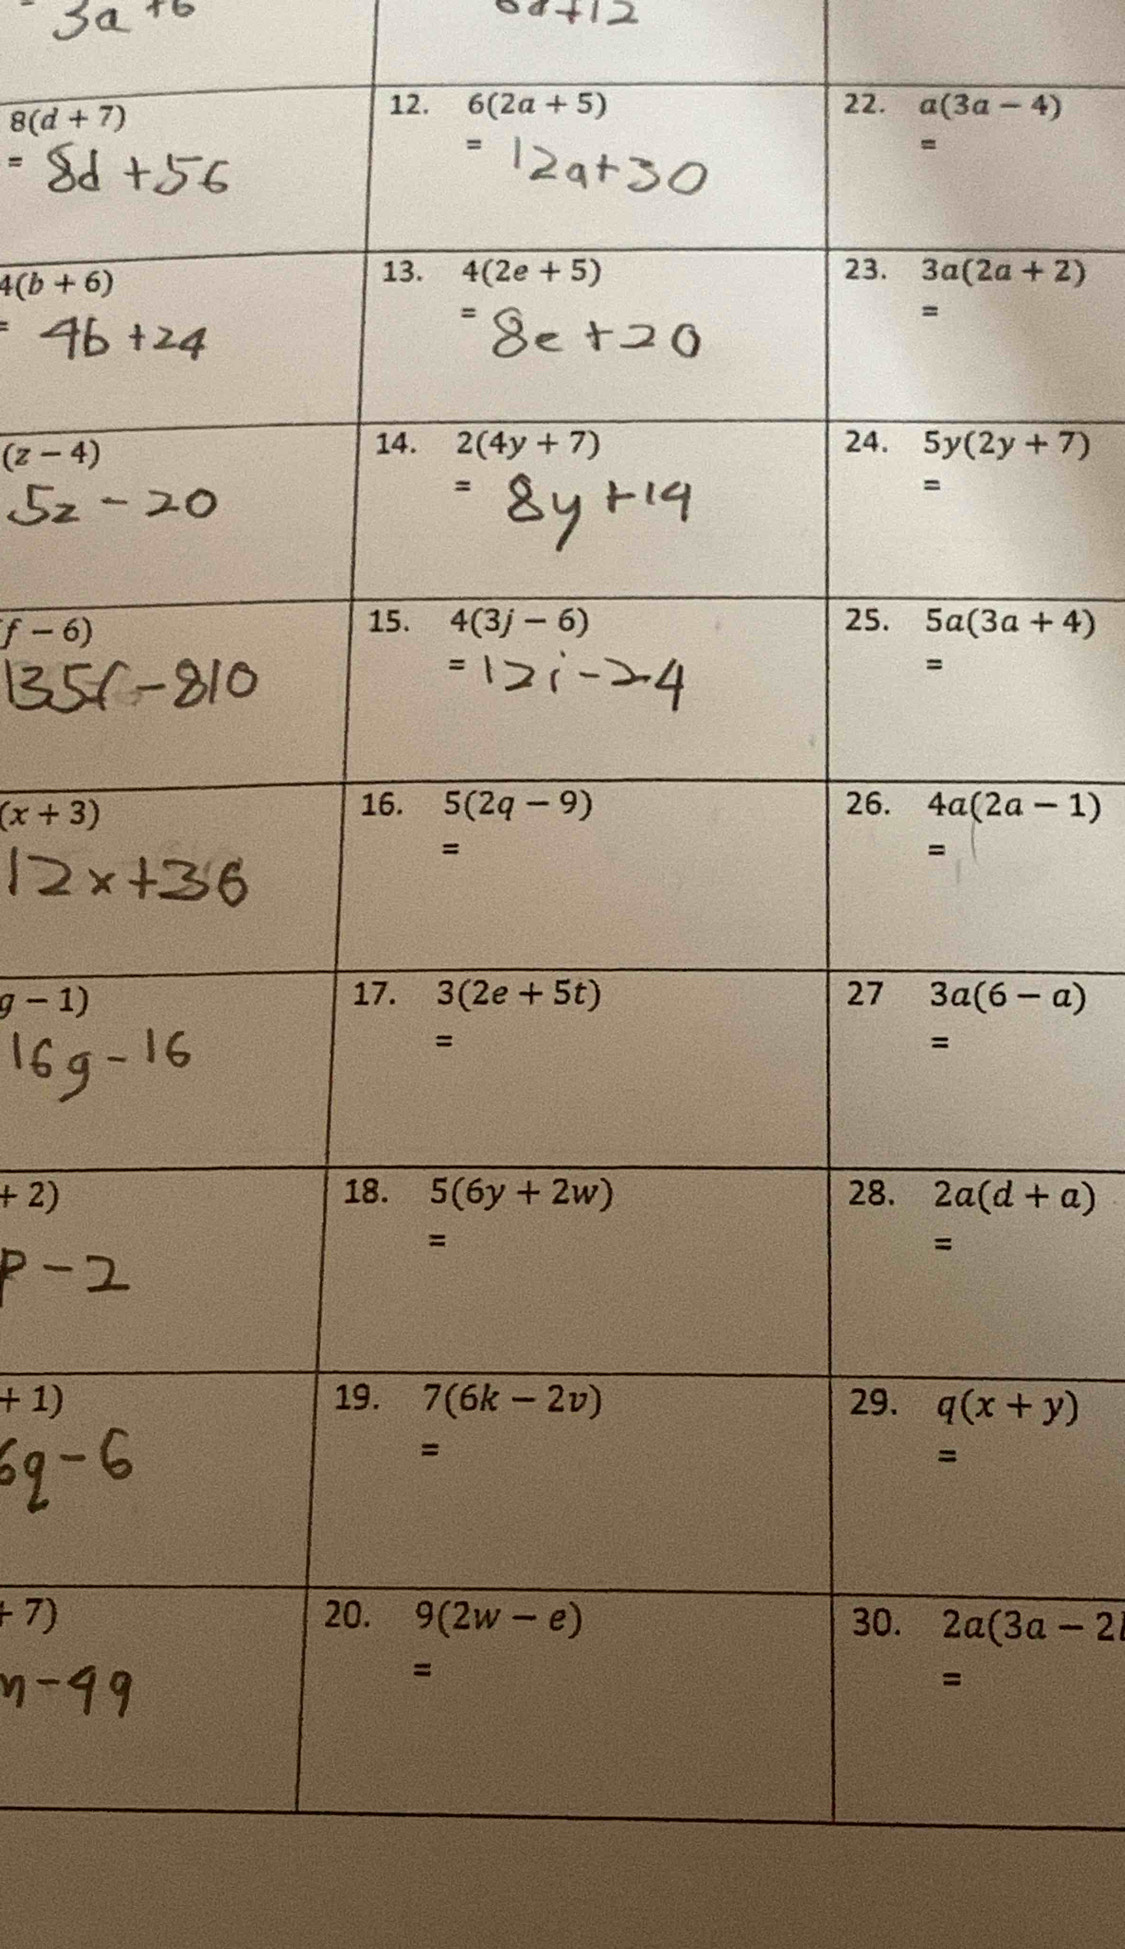 3a +6
12. 6(2a + 5)
22. a(3a − 4)
8(d + 7)
= 12a+30
=
= 8d +56
13. 4(2e + 5)
23. 3a(2a + 2)
4(b + 6)
= 8e +20
=
= 4b +24
14. 2(4y + 7)
24. 5y(2y + 7)
(z − 4)
= 8y +14
=
5z − 20
15. 4(3j − 6)
25. 5a(3a + 4)
f − 6)
= 12j −24
=
135f −810
16. 5(2q − 9)
26. 4a(2a − 1)
(x + 3)
=
=
12x+36
17. 3(2e + 5t)
27 3a(6 − a)
g − 1)
=
=
16g −16
18. 5(6y + 2w)
28. 2a(d + a)
+ 2)
=
=
p −2
19. 7(6k − 2v)
29. q(x + y)
+ 1)
=
=
6q −6
20. 9(2w − e)
30. 2a(3a − 2
+ 7)
=
=
n −49